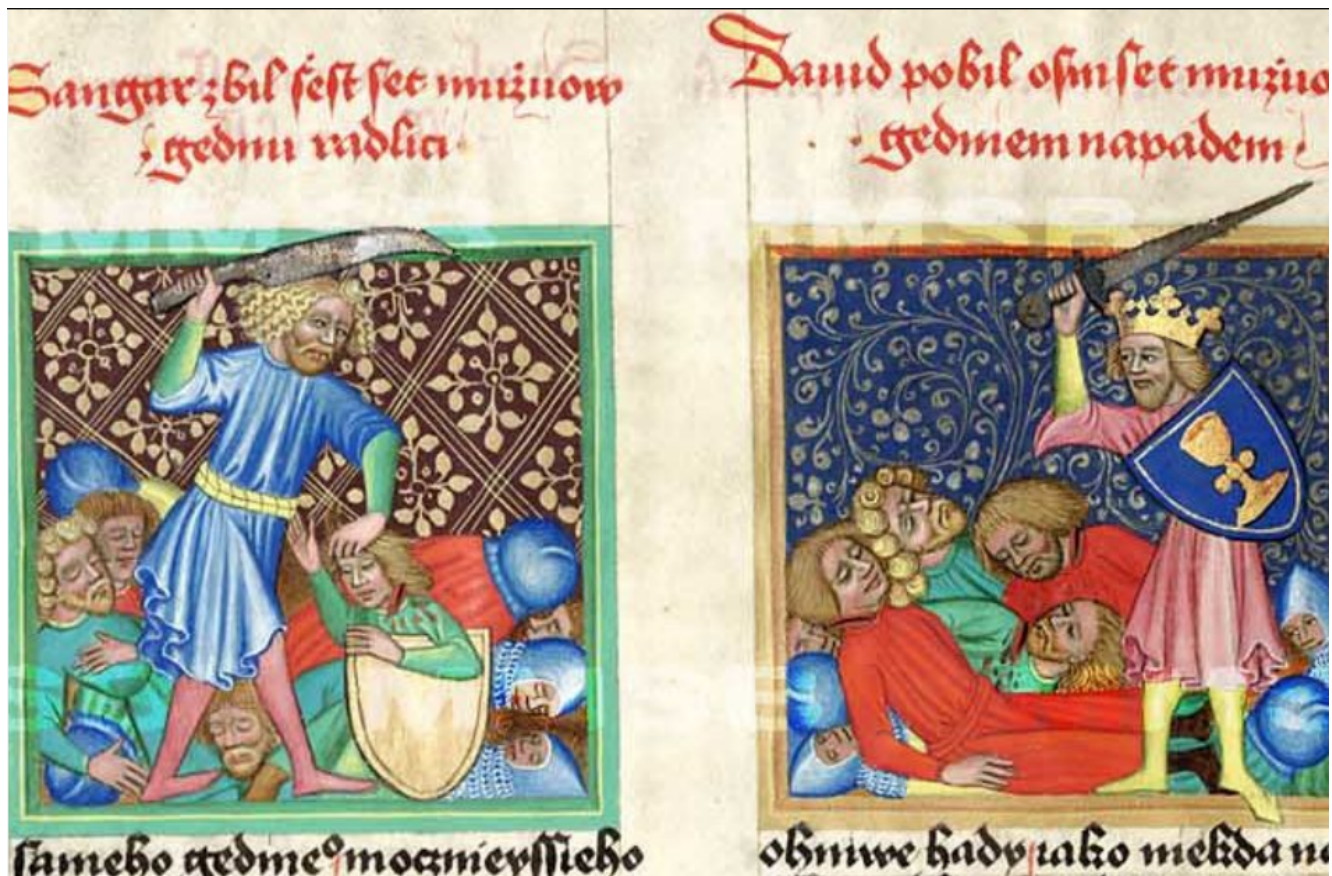 Sangar zbil ſeſt ſet muziuow
gednu radlici
ſameho gedmeᵒ mocznieyſſieho
Dauid pobil oſm ſet muziuo
gedniem napadem
ohniwe hady jako niekda na